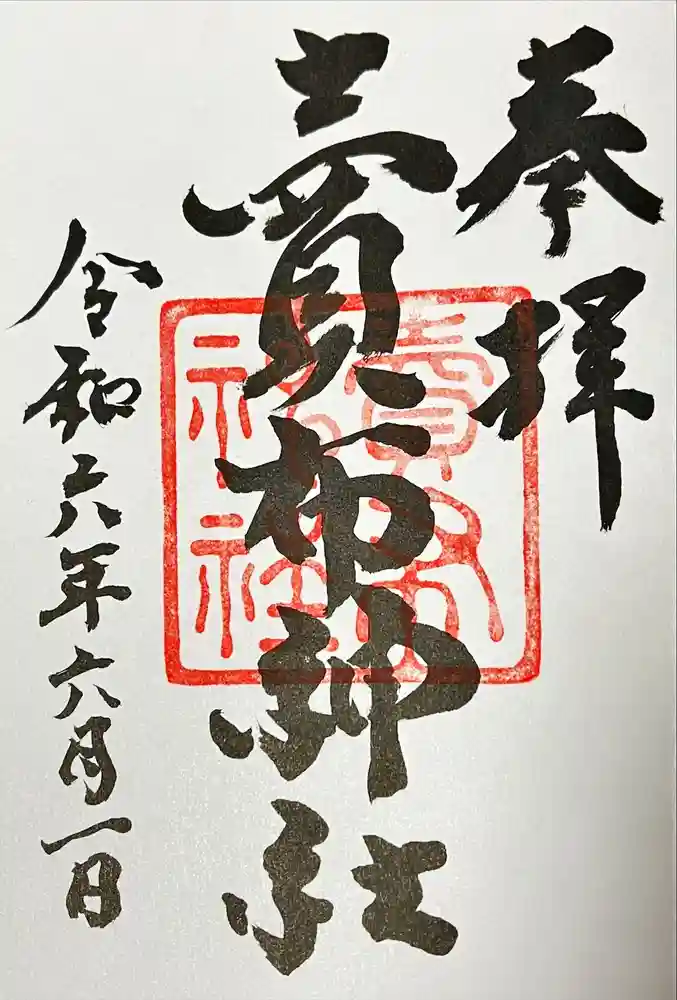 奉拝
賣布神社
賣布
神社
令和六年六月一日